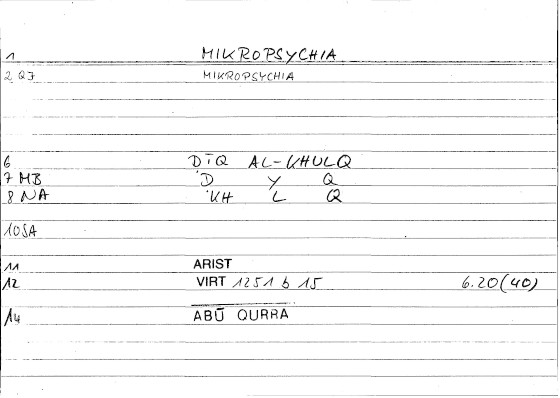 1 MIKROPSYCHIA
2 QJ MIKROPSYCHIA
6 DĪQ AL-KHULQ
7 MB 'D Y Q
8 NA 'KH L Q
10 SA
11 ARIST
12 VIRT 1251 b 15 6.20(40)
14 ABŪ QURRA